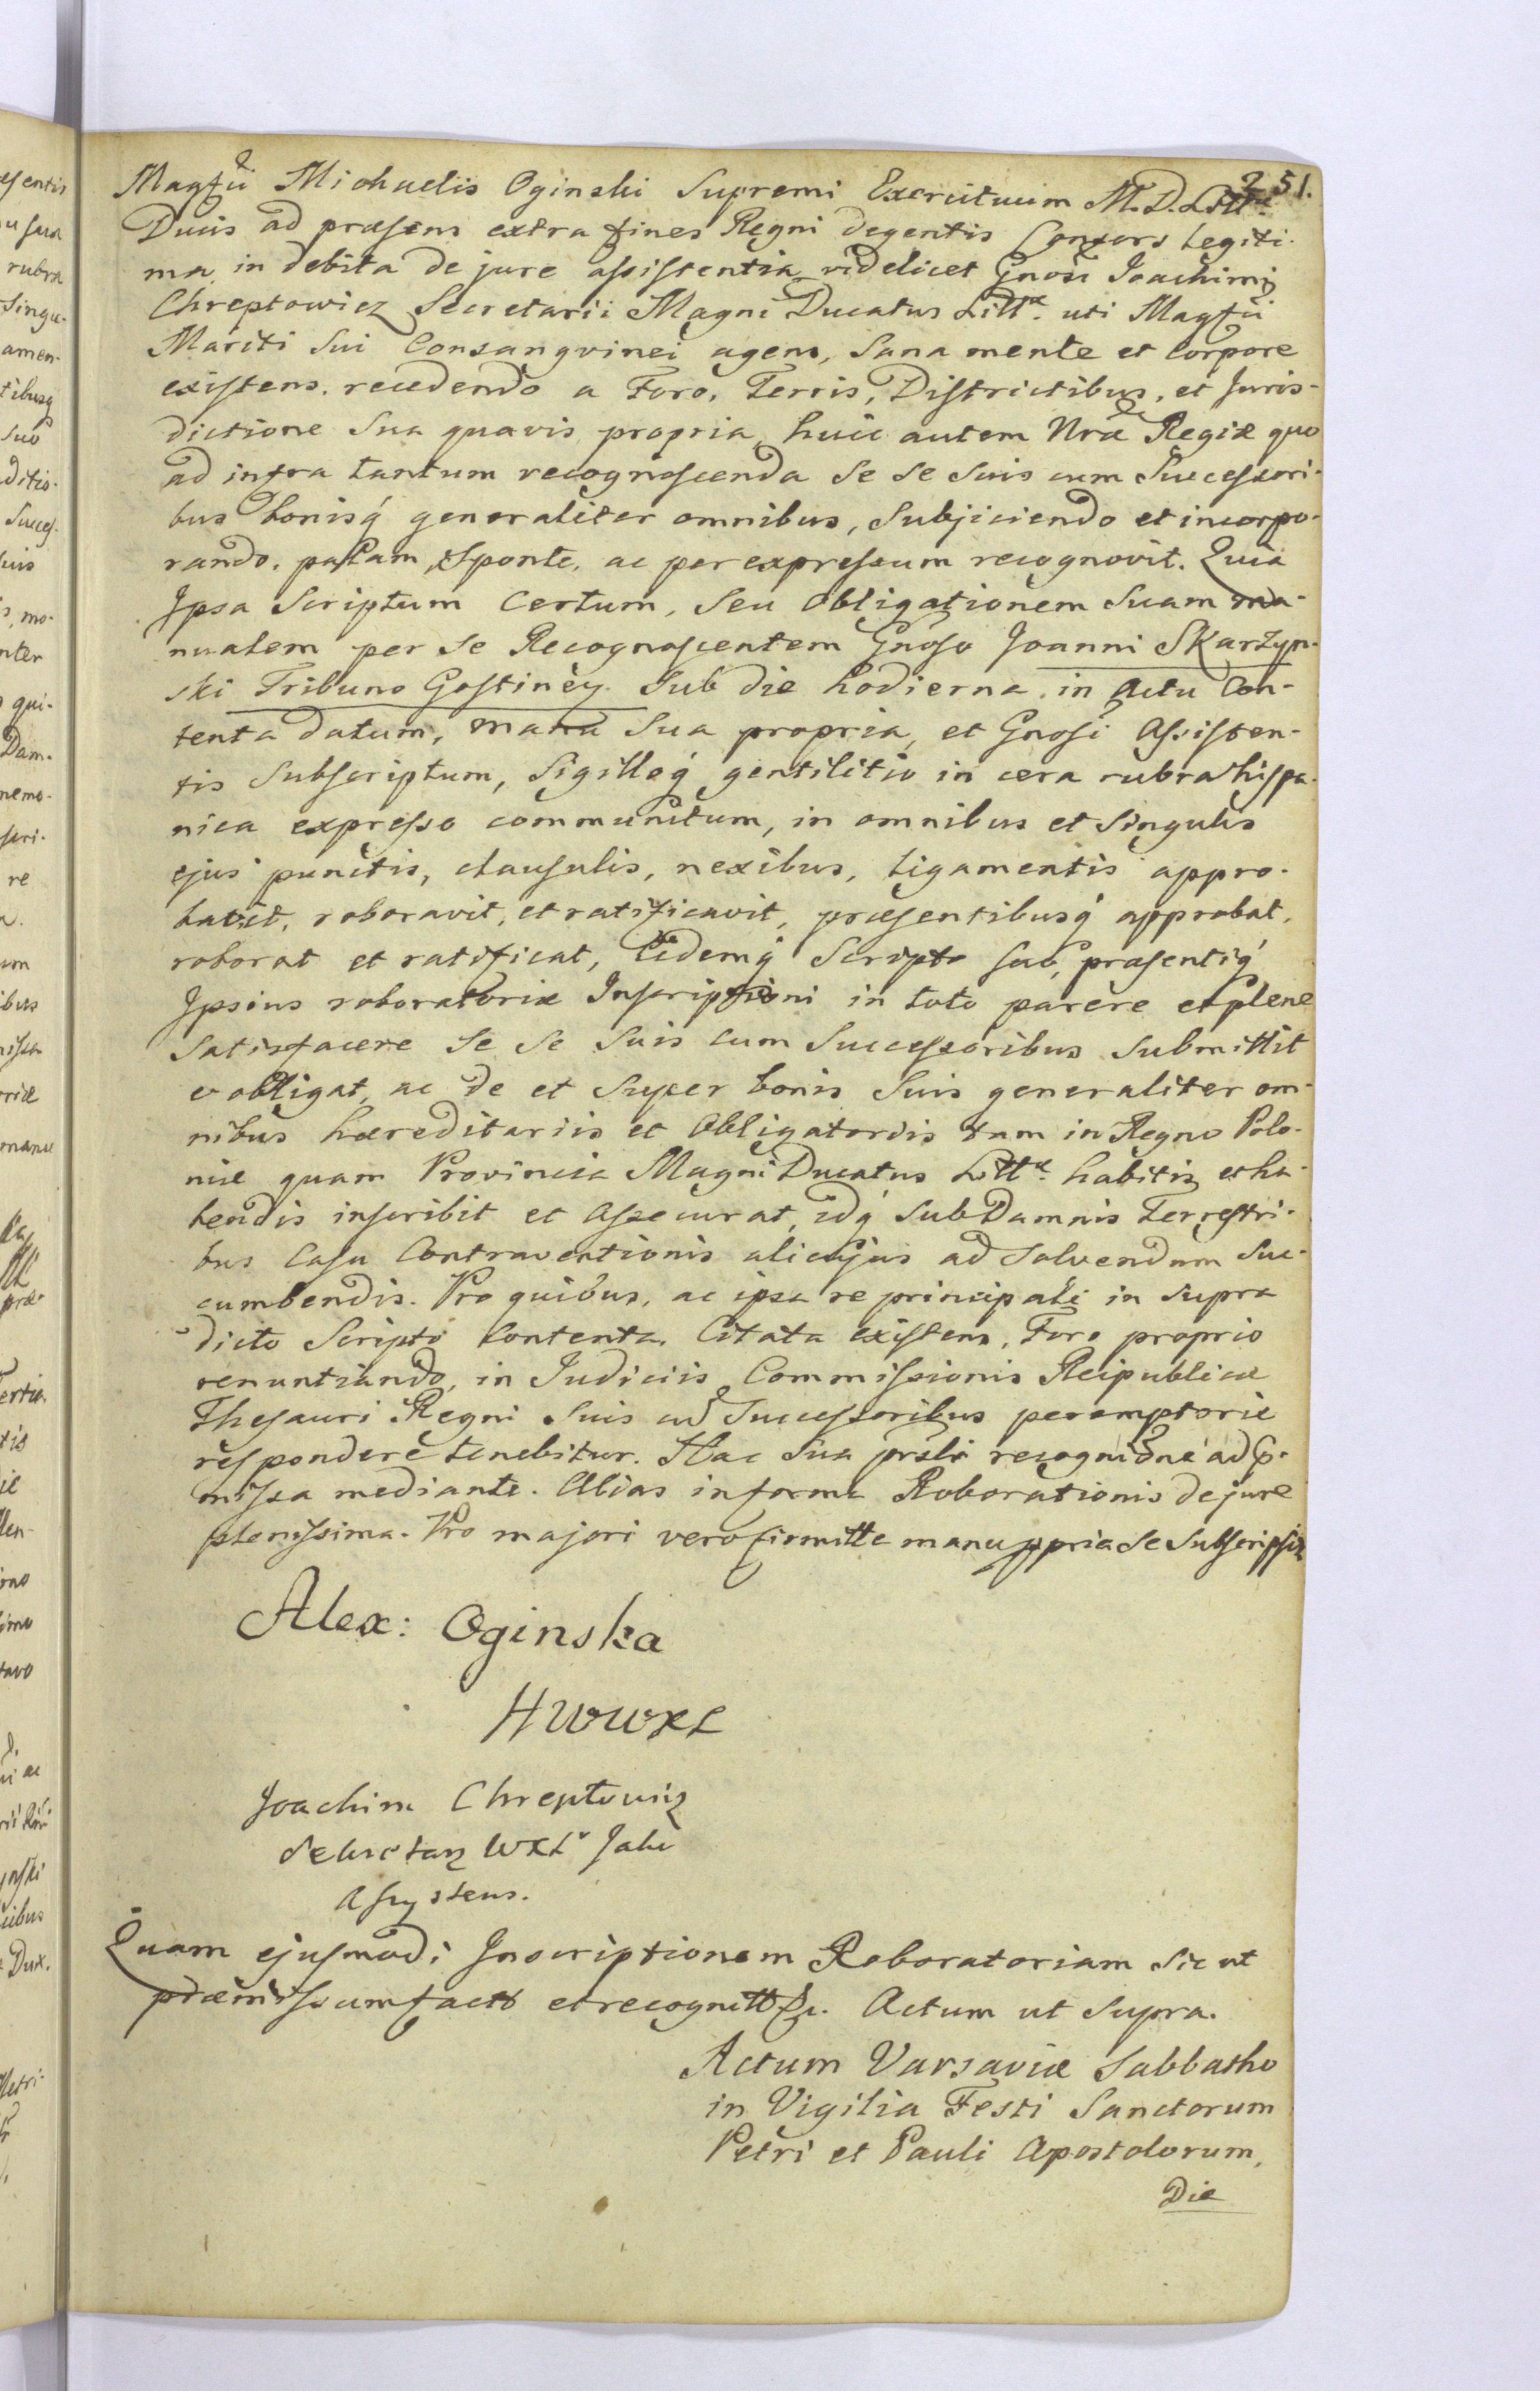 251.
Magfci Michaelis Oginski Supremi Exercituum M.D. Littæ
Ducis ad præsens extra fines Regni degentis Consors Legiti-
ma, in debita de jure assistentia, videlicet Gnosi Joachimi
Chreptowicz Secretarii Magni Ducatus Littæ. uti Magfci
Mariti Sui Consangvinei agens, Sana mente et Corpore
existens. recedendo a Foro, Terris, Districtibus, et Juris-
dictione Sua quavis propria, huic autem Nræ Regiæ quo
ad infra tantum recognoscenda Se Se Suis cum Successori-
bus bonisq́ generaliter omnibus, Subjiciendo et incorpo-
rando, palam, Sponte, ac per expressum recognovit. Quia
Ipsa Scriptum Certum, Seu Obligationem Suam ma-
nualem per Se Recognoscentem Gnoso Joanni Skarzyn-
ski Tribuno Gostinen. Sub die hodierna, in Actu Con-
tenta datum, manu Sua propria, et Gnosi Assisten-
tis Subscriptum, Sigilloq́ gentilitio in cera rubra hispa-
nica expresso communitum, in omnibus et Singulis
ejus punctis, clausulis, nexibus, ligamentis appro-
bavit, roboravit, et ratificavit, præsentibusq́ approbat,
roborat et ratificat, Eidemq́ Scripto Suo, præsentiq́
Ipsius roboratoriæ Inscriptioni in toto parere et plene
Satisfacere Se Se Suis cum Successoribus Submittit
et obligat, ac de et Super bonis Suis generaliter om-
nibus hæreditariis et Obligatoriis tam in Regno Polo-
niæ quam Provincia Magni Ducatus Littæ. habitis et ha-
bendis inscribit et Assecurat, idq́ Sub Damnis Terrestri-
bus Casu Contraventionis alicujus ad Solvendum Suc-
cumbendis. Pro quibus, ac ipsa re principali in Supra
dicto Scripto Contenta, Citata existens, Foro proprio
renuntiando, in Judiciis Commissionis Reipublicæ
Thesauri Regni Suis cũ Successoribus peremptorie
respondere tenebitur. Hac Sua prsti recognidne ad p-
missa mediante. Alias in forma Roborationis de jure
plenissima. Pro majori vero firmitte manu ppria Se Subscripsit
Alex: Oginska
HWWXL
Joachim Chreptowicz
Sekretarz WXL Jako
Assystens.
Quam ejusmodi Inscriptionem Roboratoriam Sic ut
præmissum facto et recognitto &c. Actum ut Supra.
Actum Varsaviæ Sabbatho
in Vigilia Festi Sanctorum
Petri et Pauli Apostolorum,
Die